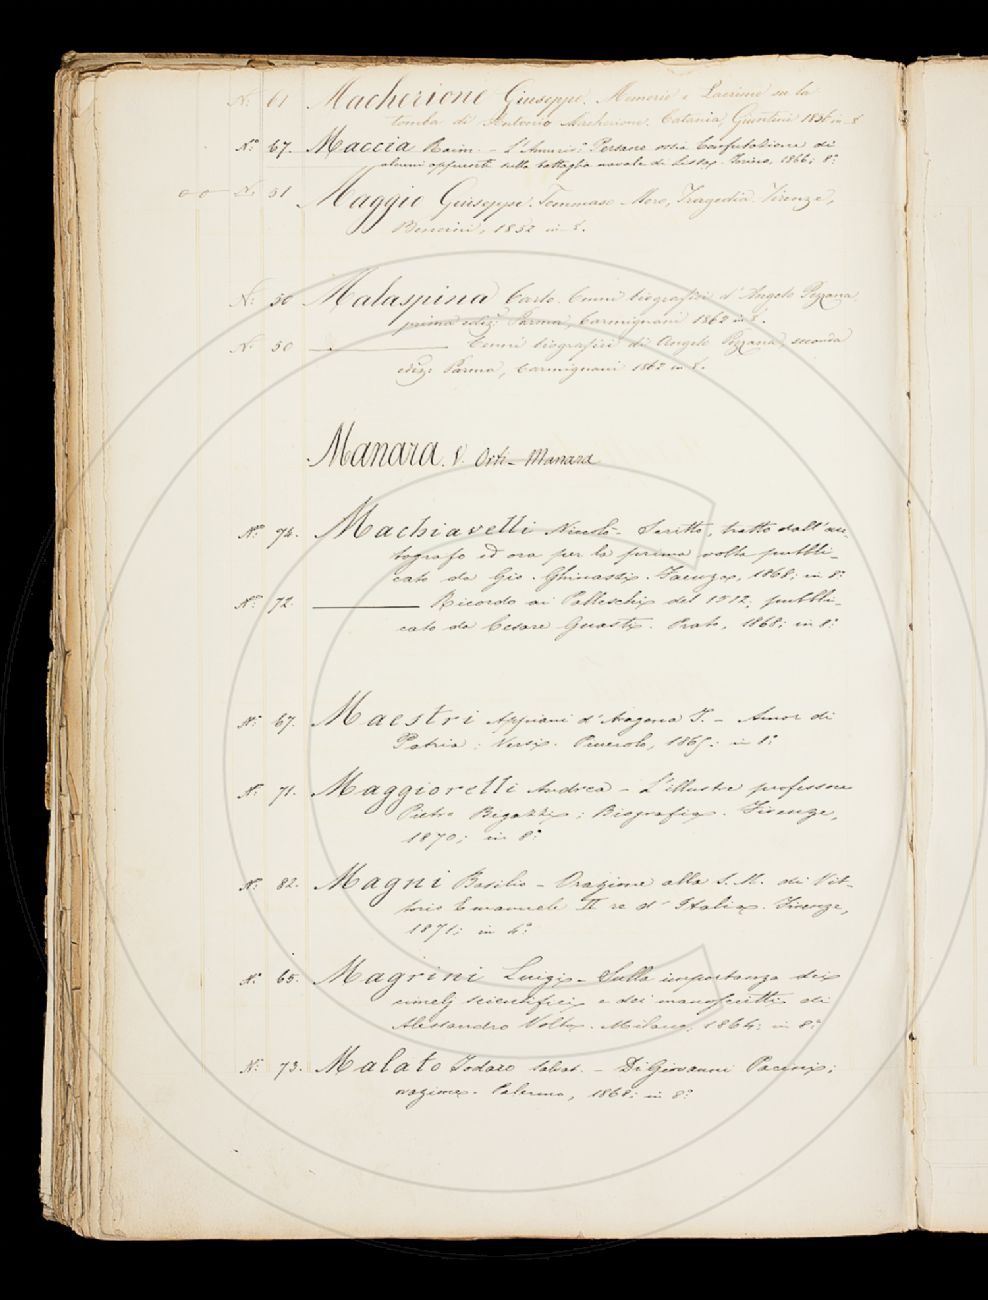 N.° 61 Macherione Giuseppe. Memorie e Lacrime su la
tomba di Antonio Macherione. Catania, Giuntini 1856 in-8
N.° 67. Maccia Raim. - L'Ammir.° Persano ossia Confutazione di
alcuni appunti sulla battaglia navale di Lissa. Torino, 1866; 8.°
N.° 51 Maggio Giuseppe. Tommaso Moro, Tragedia. Firenze,
Bencini, 1852 in-8.
N.° 50 Malaspina Carlo. Cenni biografici d'Angelo Pezzana
prima ediz. Parma, Carmignani 1862 in 8.
N.° 50 Cenni biografici di Angelo Pezzana, seconda
ediz. Parma, Carmignani 1862 in 8.
Manara. V. Orti-Manara
N.° 74. Machiavelli Nicolò - Scritto, tratto dall'au-
tografo ed ora per la prima volta pubbli-
cato da Gio. Ghinassi. Faenza, 1868; in 8.°
N.° 72. Ricordo ai Palleschi del 1512, pubbli-
cato da Cesare Guasti. Prato, 1868; in 8.°
N.° 67. Maestri Appiani d'Aragona F. - Amor di
Patria: Versi. Pinerolo, 1865; in 8.°
N.° 71. Maggiorelli Andrea - L'illustre professore
Pietro Begazzi; Biografia. Firenze,
1870; in 8.°
N.° 82. Magni Basilio - Orazione alla S. M. di Vit-
torio Emanuele II re d'Italia. Firenze,
1871; in 4.°
N.° 65. Magrini Luigi - Sulla importanza dei
cimelj scientifici e dei manoscritti di
Alessandro Volta. Milano, 1864; in 8.°
N.° 73. Malato Todaro Salvat. - Di Giovanni Pacini;
orazione. Palermo, 1868; in 8.°